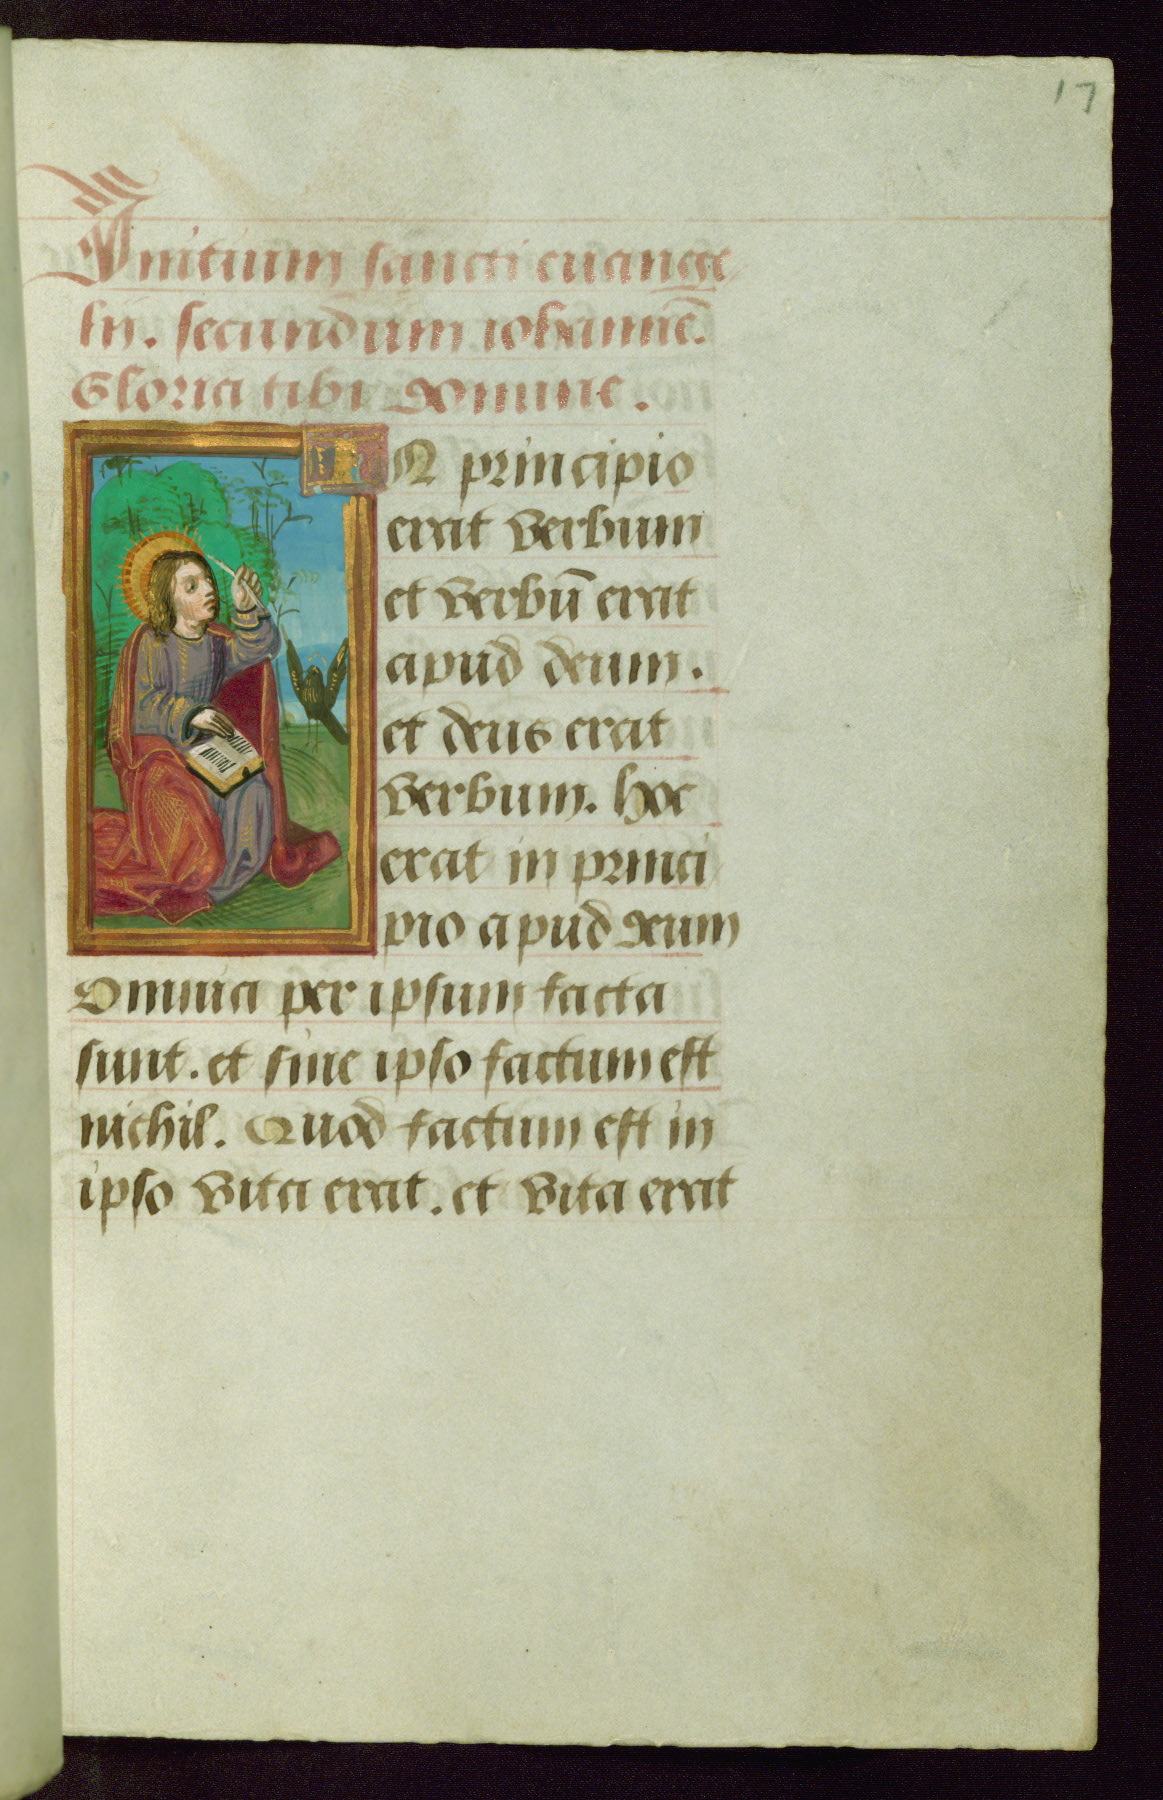 17
Initium sancti euange
lii. secundum iohannē.
Gloria tibi domine.
IN principio
erat verbum
et verbū erat
apud deum.
et deus erat
verbum. hoc
erat in princi
pio apud deum
Omnia per ipsum facta
sunt. et sine ipso factum est
nichil. Quod factum est in
ipso vita erat. et vita erat